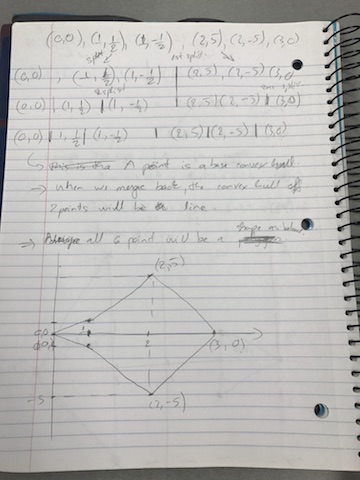 (0,0), (1, 1/2), (1, -1/2), (2,5), (2,-5), (3,0)
split
(0,0), (1, 1/2), (1, -1/2) | (2,5), (2,-5) (3,0)
split
(0,0) | (1, 1/2) | (1, -1/2) (2,5) (2,-5) | (3,0)
(0,0) | 1, 1/2 | (1, -1/2) | (2,5) | (2,-5) | (3,0)
A point is a base convex hull.
→ when we merge back, the convex hull of
2 points will be a line.
⇒ all 6 point will be a shape as below
(2,5)
0,0
1
2
(3, 0)
-5
(2,-5)